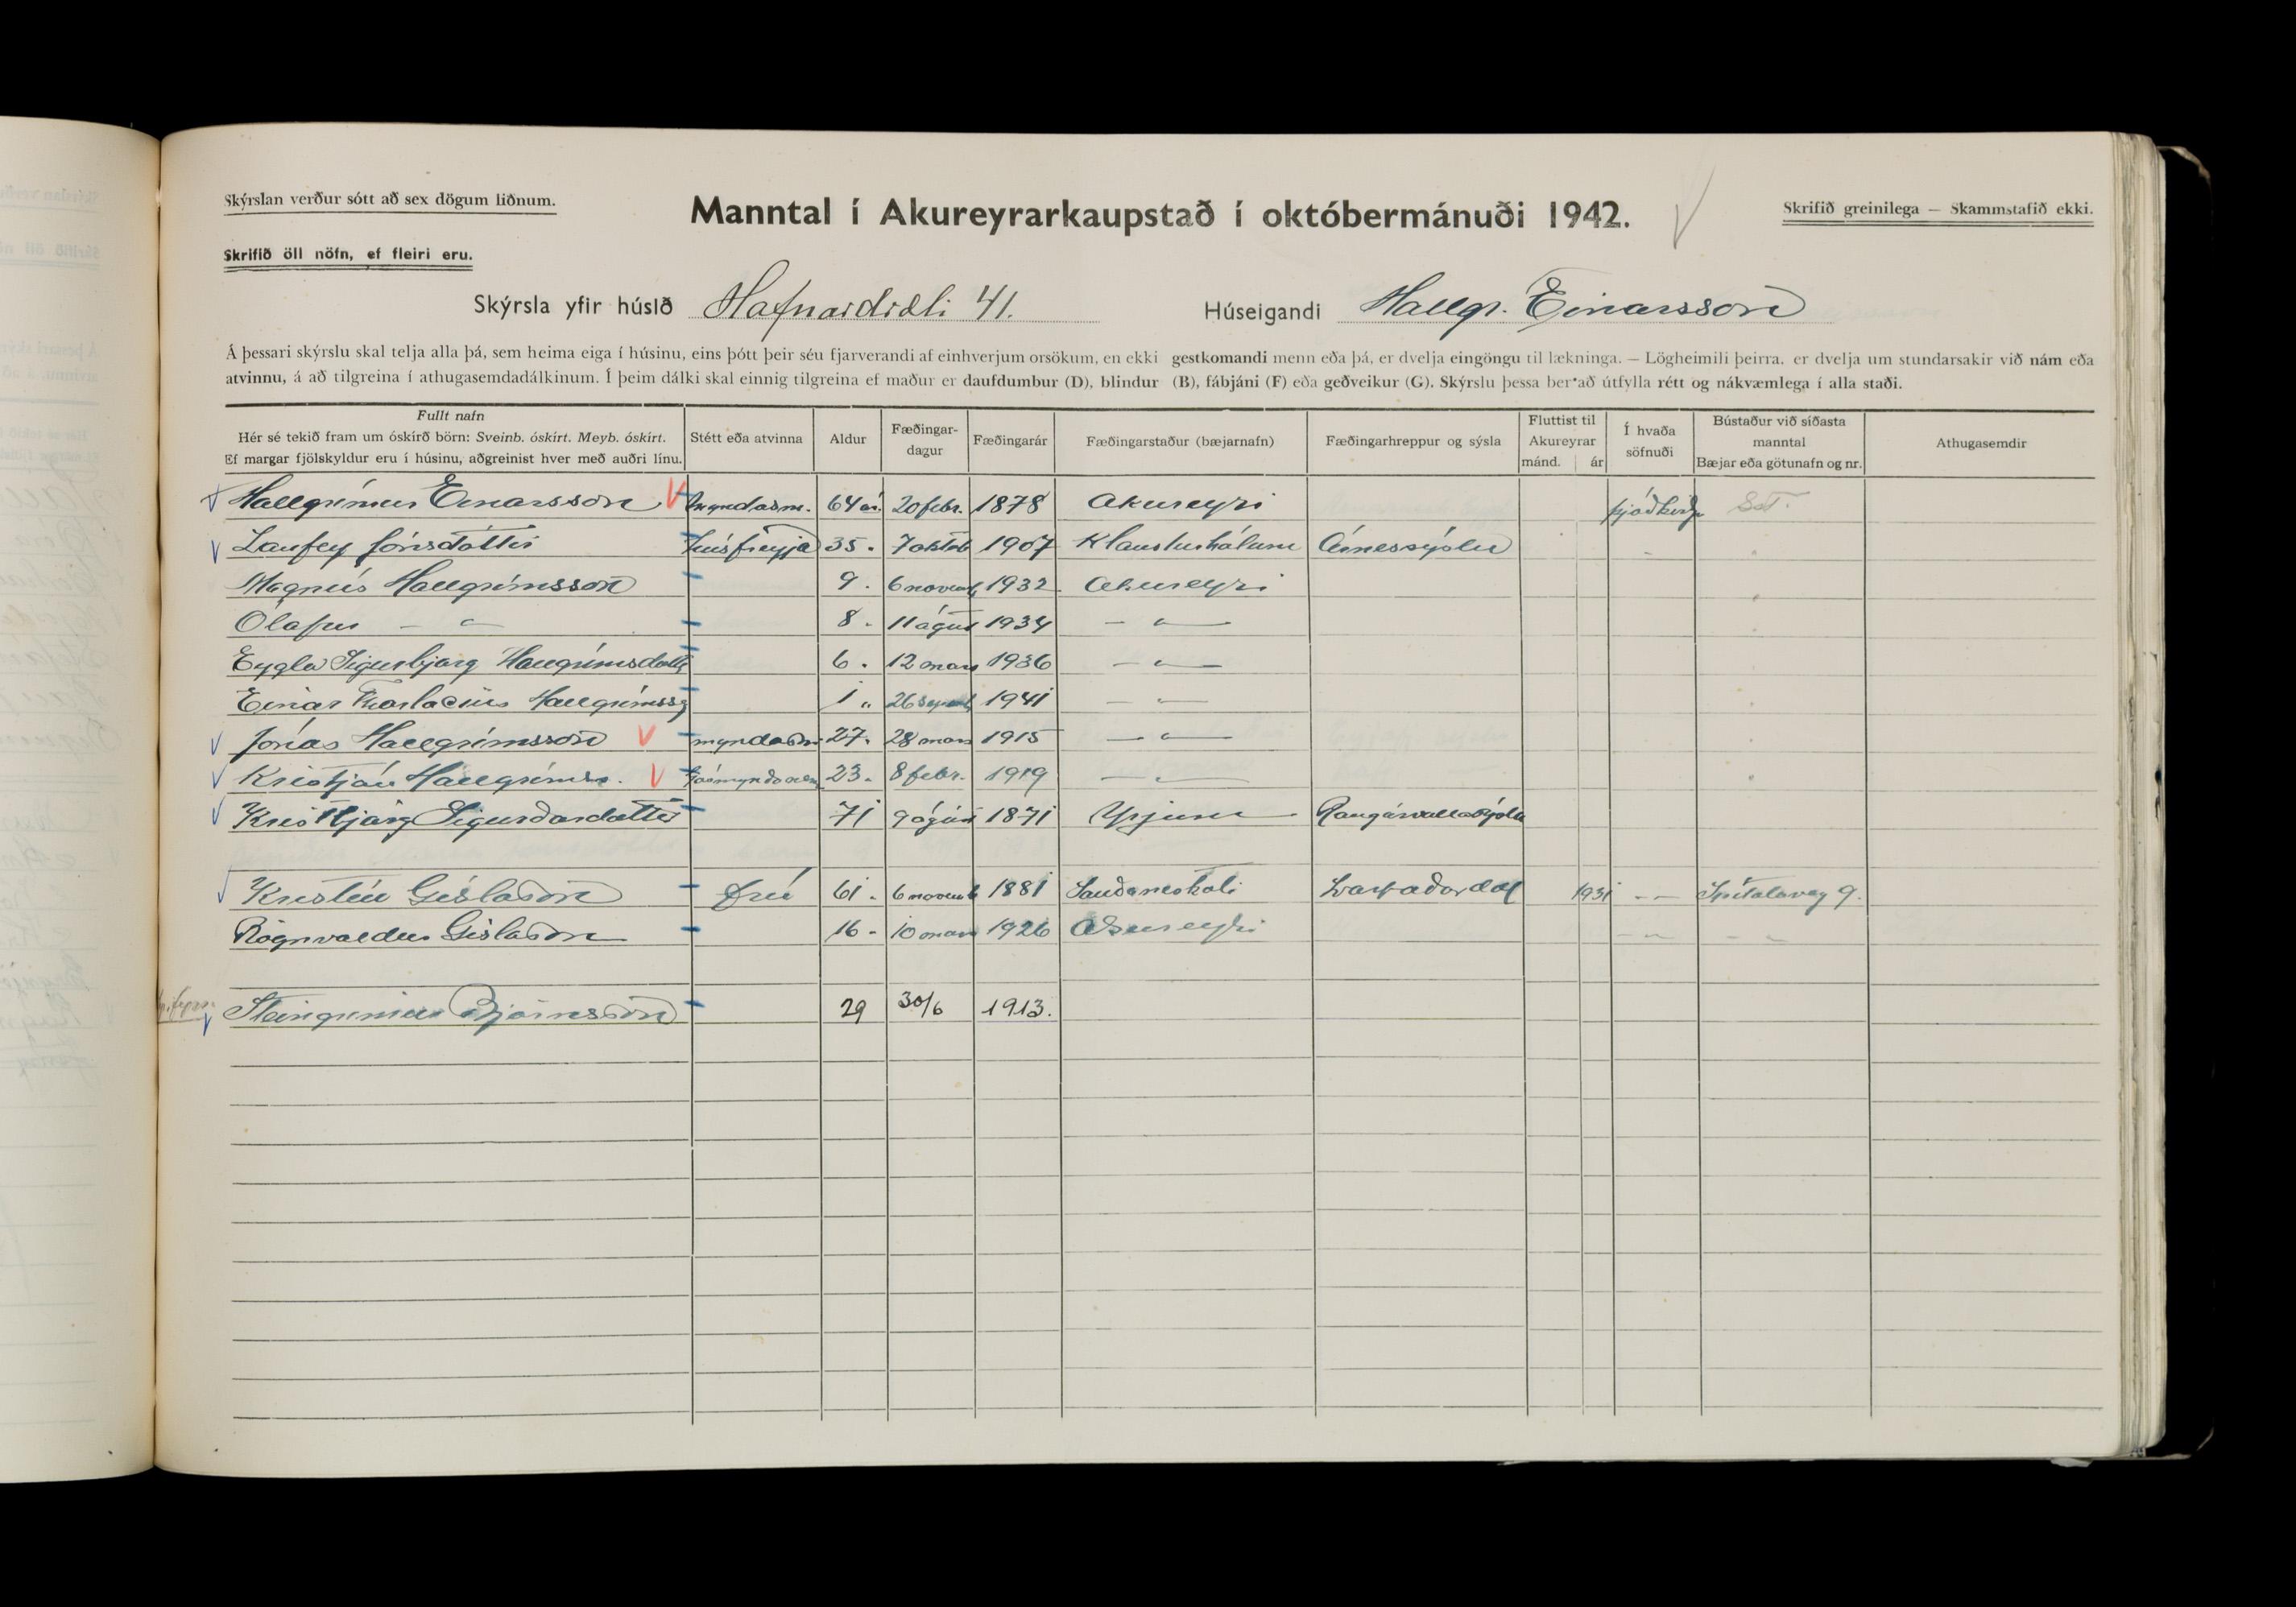 Skýrslan verður sótt að sex dögum liðnum.
Manntal í Akureyrarkaupstað í októbermánuði 1942.
Skrifið greinilega — Skammstafið ekki.
Skrifið öll nöfn, ef fleiri eru.
Skýrsla yfir húsið Hafnarstræti 41. Húseigandi Hallgr. Einarsson
Á þessari skýrslu skal telja alla þá, sem heima eiga í húsinu, eins þótt þeir séu fjarverandi af einhverjum orsökum, en ekki gestkomandi menn eða þá, er dvelja eingöngu til lækninga. — Lögheimili þeirra, er dvelja um stundarsakir við nám eða
atvinnu, á að tilgreina í athugasemdadálkinum. Í þeim dálki skal einnig tilgreina ef maður er daufdumbur (D), blindur (B), fábjáni (F) eða geðveikur (G). Skýrslu þessa ber að útfylla rétt og nákvæmlega í alla staði.
Fullt nafn
Hér sé tekið fram um óskírð börn: Sveinb. óskírt. Meyb. óskírt.
Ef margar fjölskyldur eru í húsinu, aðgreinist hver með auðri línu.
Stétt eða atvinna
Aldur
Fæðingar-
dagur
Fæðingarár
Fæðingarstaður (bæjarnafn)
Fæðingarhreppur og sýsla
Fluttist til
Akureyrar
mánd. ár
Í hvaða
söfnuði
Bústaður við síðasta
manntal
Bæjar eða götunafn og nr.
Athugasemdir
Hallgrímur Einarsson myndasm. 64 ár. 20 febr. 1878 Akureyri
Laufey Jónsdóttir húsfreyja 35. 7 októb 1907 Klausturhólum Árnessýslu
Magnús Hallgrímsson 9. 6 novemb 1932 Akureyri
Ólafur — " — 8. 11 águst 1934 — " —
Eygló Sigurbjörg Hallgrímsdottir 6. 12 mars 1936 — " —
Einar Thorlacius Hallgrímss 1 " 26 septemb 1941 — " —
Jónas Hallgrímsson myndasm. 27. 28 mars 1915 — " —
Kristján Hallgrímss. 23. 8 febr. 1919 — " —
Kristbjörg Sigurðardóttir 71 9 águst 1871 Rangárvallasýslu
Kristín Gíslason frú 61. 6 novemb 1881 Svarfaðardal 1931 - - Spítalaveg 9.
Rögnvaldur Gíslason 16 - 10 mars 1926 Akureyri — " — — " —
Steingrímur Björnsson 29 30/6 1913.